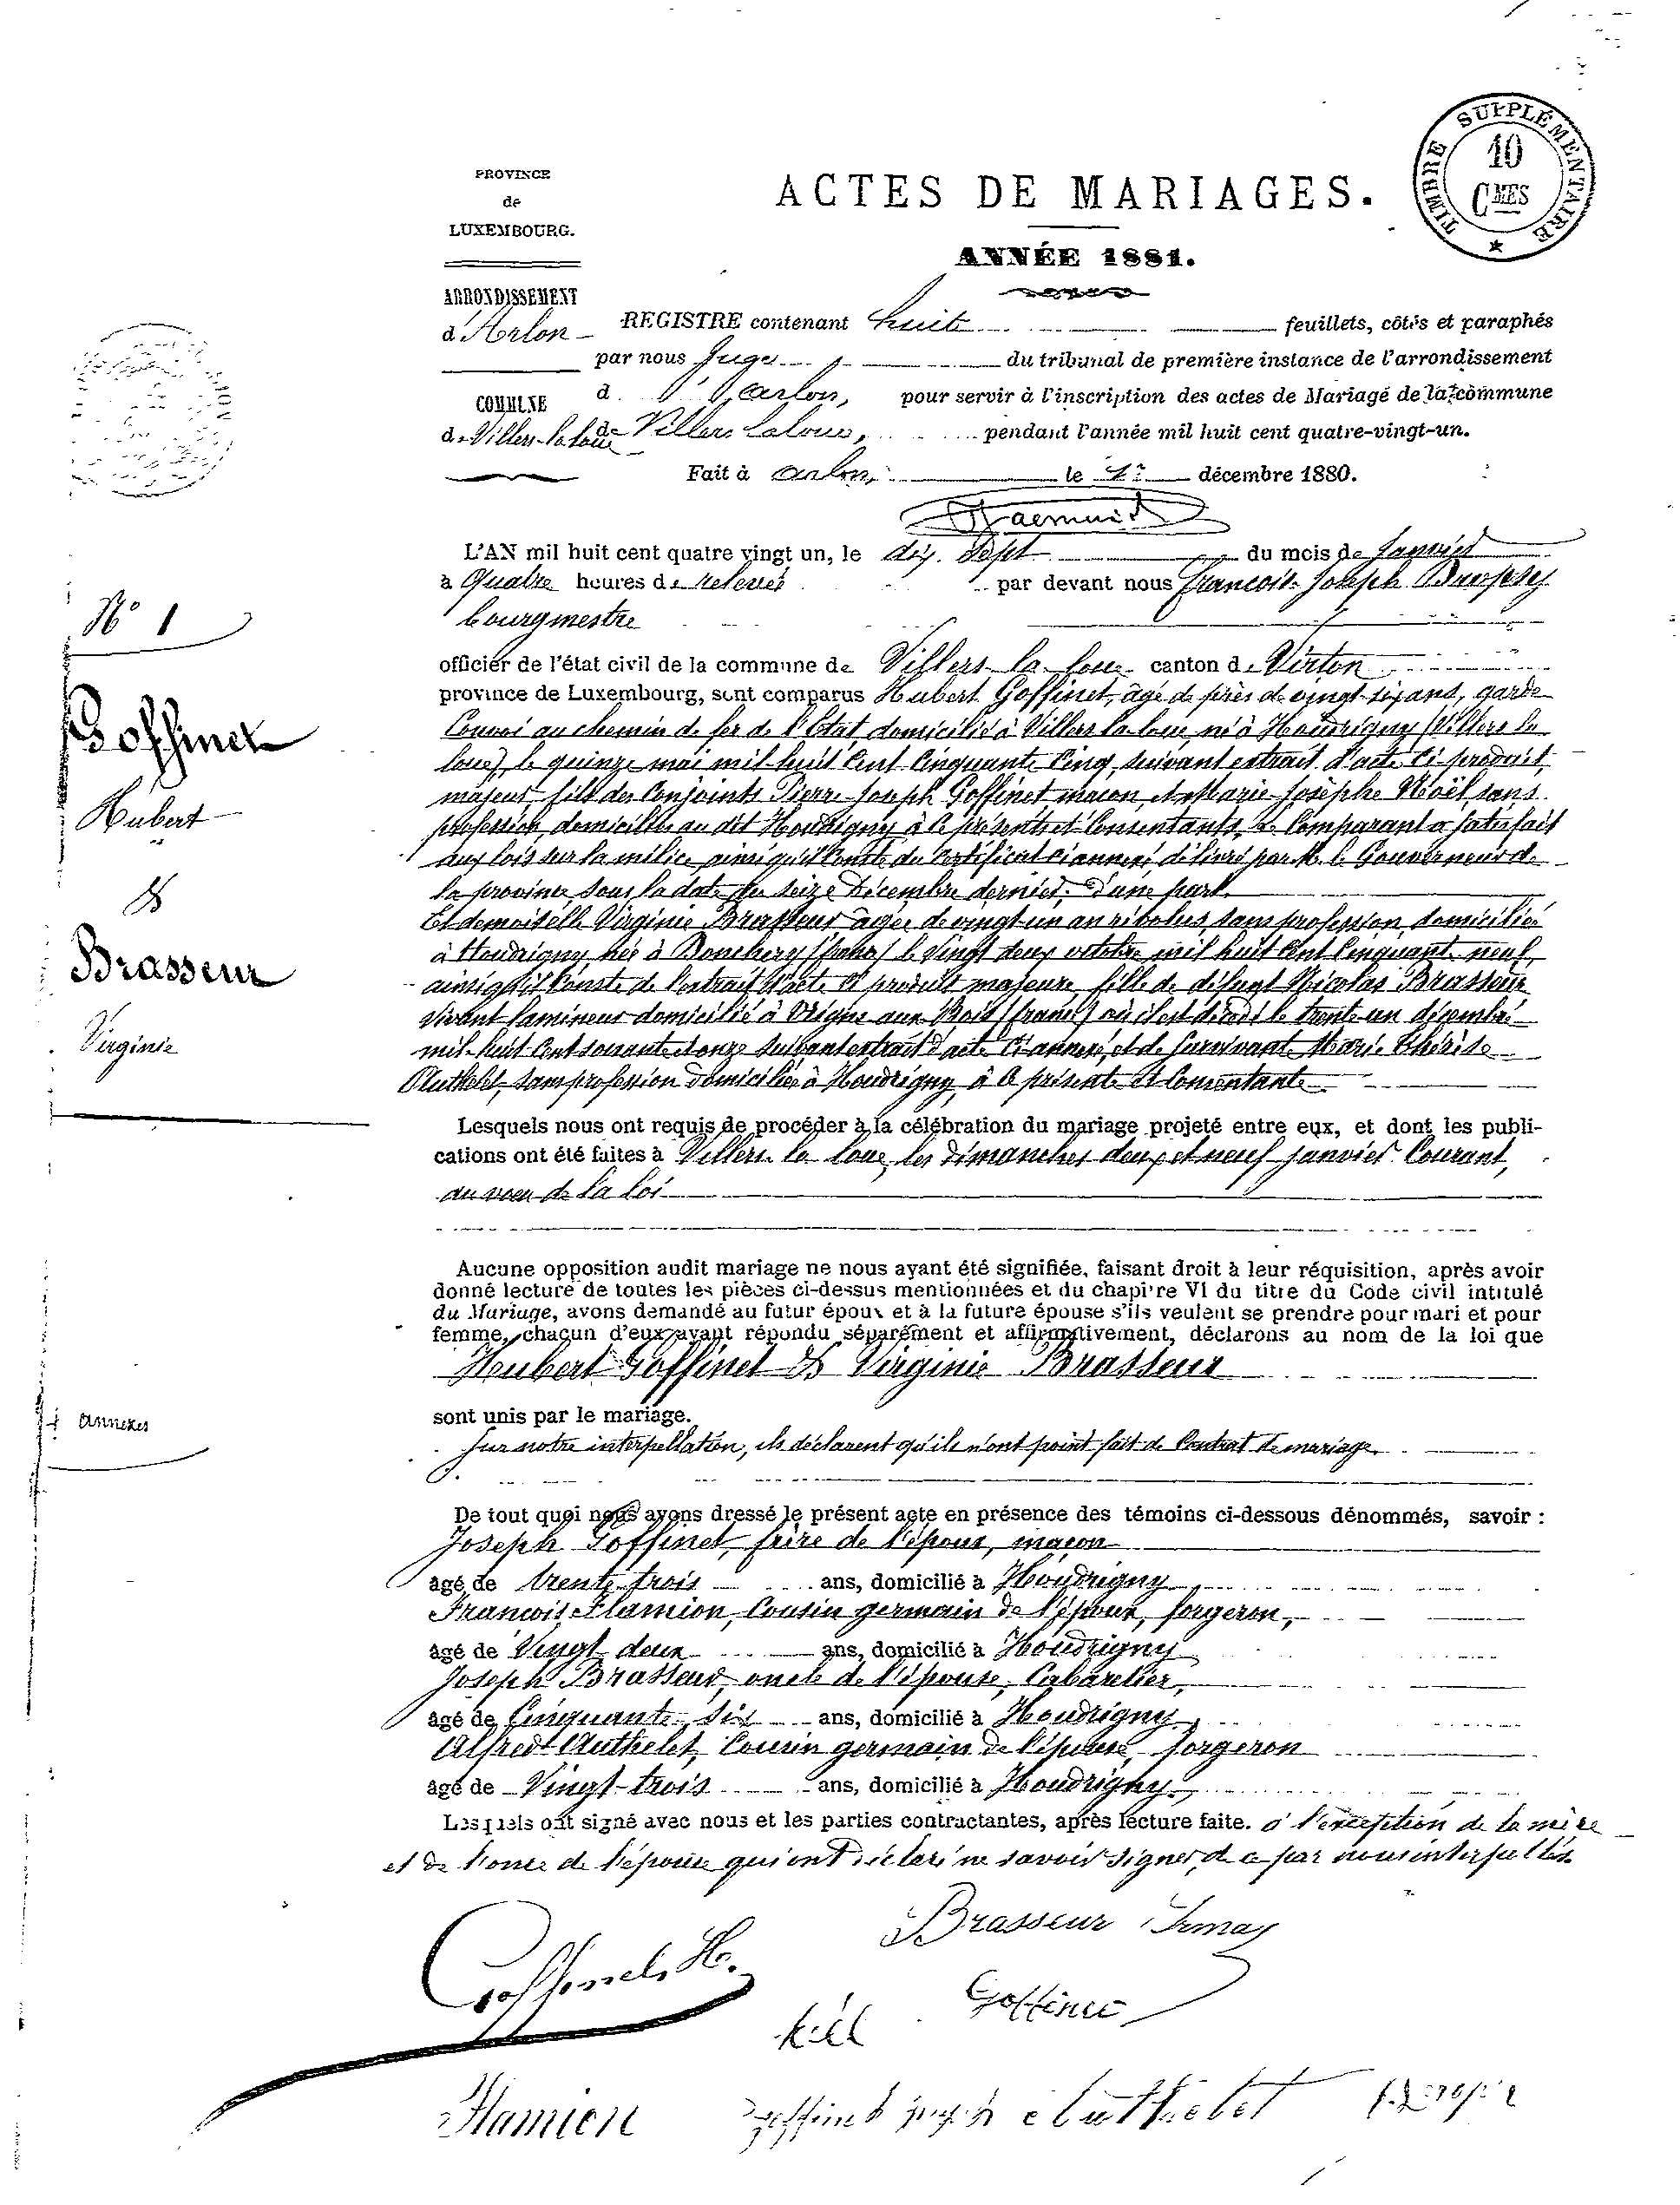 TIMBRE SUPPLÉMENTAIRE
10
CMES
PROVINCE
de
LUXEMBOURG.
ACTES DE MARIAGES.
ANNÉE 1881.
ARRONDISSEMENT
d'Arlon
COMMUNE
de Villers-la-loue
REGISTRE contenant huit feuillets, côtés et paraphés
par nous Juge du tribunal de première instance de l'arrondissement
d'arlon, pour servir à l'inscription des actes de Mariage de la commune
de Villers laloue, pendant l'année mil huit cent quatre-vingt-un.
Fait à arlon, le 1er décembre 1880.
L'AN mil huit cent quatre vingt un, le dix sept du mois de janvier
à quatre heures de relevée par devant nous François Joseph
bourgmestre
officier de l'état civil de la commune de Villers la loue canton de Virton
province de Luxembourg, sont comparus Hubert Goffinet, âgé de près de vingt-six ans, garde
Convoi au chemin de fer de l'État domicilié à Villers la loue, né à Houdrigny (Villers la
loue), le quinze mai mil huit cent cinquante cinq, suivant extrait d'acte ci produit,
majeur, fils des conjoints Pierre Joseph Goffinet maçon et Marie Josèphe Noël sans
profession, domiciliés au dit Houdrigny à ce présents et consentants, le comparant a satisfait
aux lois sur la milice, ainsi qu'il conste du certificat ci annexé, délivré par M. le Gouverneur de
la province sous la date du seize décembre dernier, d'une part.
Et demoiselle Virginie Brasseur âgée de vingt-un an révolus, sans profession, domiciliée
à Houdrigny, née à le vingt deux octobre mil huit cent cinquante neuf,
ainsi qu'il conste de l'extrait d'acte ci produit majeure, fille de défunt Nicolas Brasseur
vivant lamineur domicilié à Vrigne aux Bois (france) où il est décédé le trente un décembre
mil-huit cent soixante et onze suivant extrait d'acte ci annexé, et de survivante Marie Thérèse
Authelet, sans profession domiciliée à Houdrigny, à ce présente et consentante
Lesquels nous ont requis de procéder à la célébration du mariage projeté entre eux, et dont les publi-
cations ont été faites à Villers la loue, les dimanches deux et neuf janvier courant,
au voeu de la loi
Aucune opposition audit mariage ne nous ayant été signifiée, faisant droit à leur réquisition, après avoir
donné lecture de toutes les pièces ci-dessus mentionnées et du chapitre VI du titre du Code civil intitulé
du Mariage, avons demandé au futur époux et à la future épouse s'ils veulent se prendre pour mari et pour
femme, chacun d'eux ayant répondu séparément et affirmativement, déclarons au nom de la loi que
Hubert Goffinet & Virginie Brasseur
sont unis par le mariage.
Sur notre interpellation, ils déclarent qu'ils n'ont point fait de contrat de mariage.
De tout quoi nous avons dressé le présent acte en présence des témoins ci-dessous dénommés, savoir :
Joseph Goffinet, frère de l'époux, maçon
âgé de trente trois ans, domicilié à Houdrigny,
François Flamion, cousin germain de l'époux, forgeron,
âgé de Vingt deux ans, domicilié à Houdrigny
Joseph Brasseur, oncle de l'épouse, cabaretier,
âgé de cinquante six ans, domicilié à Houdrigny,
Alfred Authelet, cousin germain de l'épouse, forgeron
âgé de Vingt-trois ans, domicilié à Houdrigny,
Lesquels ont signé avec nous et les parties contractantes, après lecture faite. à l'exception de la mère
et de l'oncle de l'épouse qui ont déclaré ne savoir signer, de ce par nous interpellés.
N° 1
Goffinet
Hubert
&
Brasseur
Virginie
annexes
Goffinet, H.
Brasseur Irma
Goffinet
Flamion
goffinet joseph
authelet